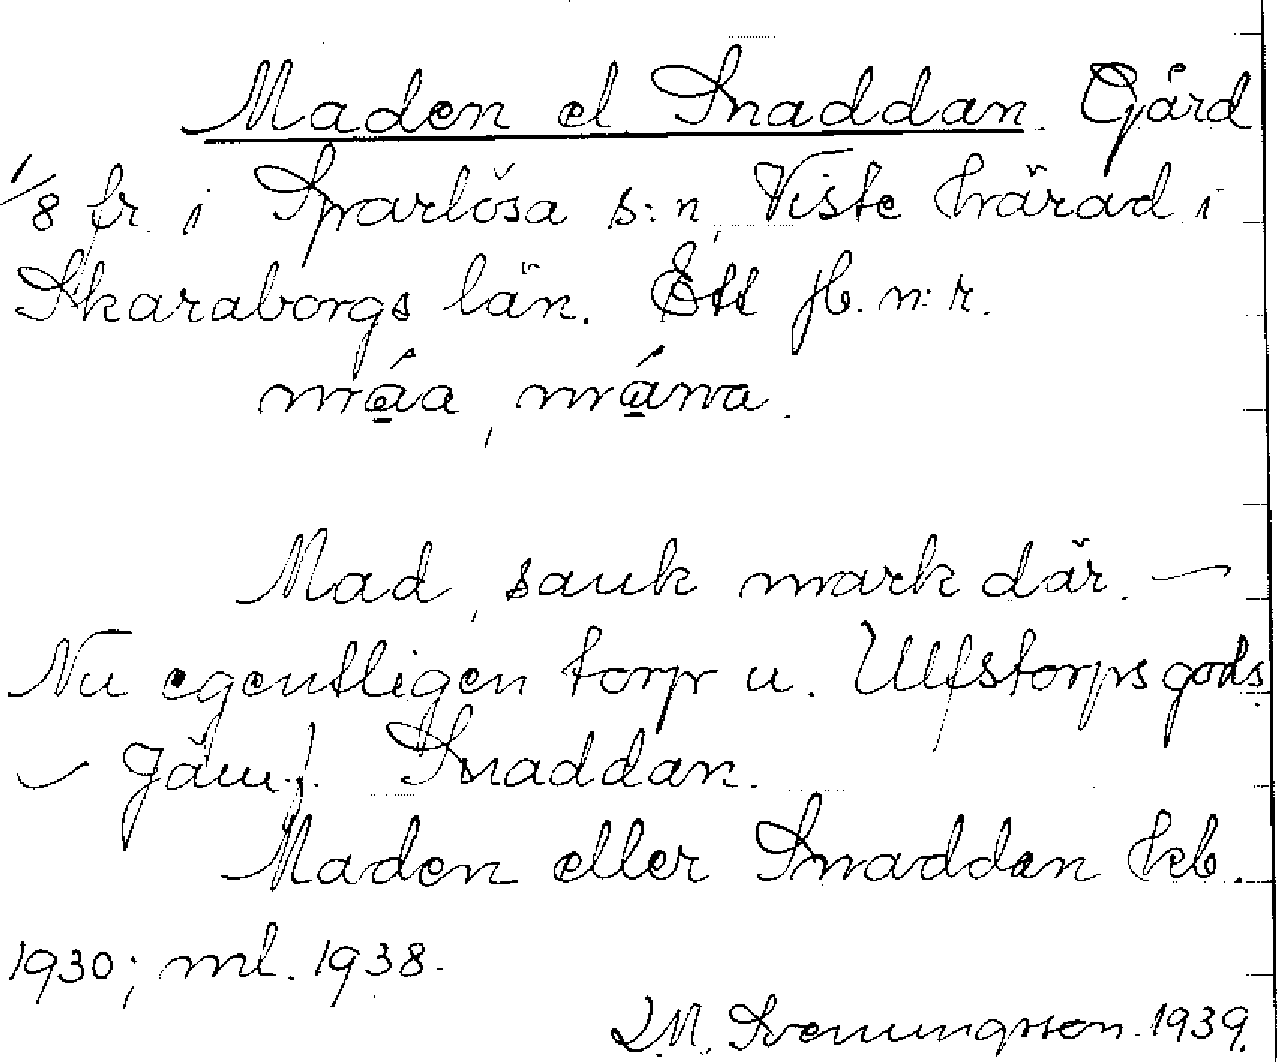 Maden el Snaddan. Gård
1/8 fr. i Sparlösa s:n, Viste härad i
Skaraborgs län. Ett jb. n:r.
Mad, sank mark där. —
Nu egentligen torp u. Ulfstorps gods.
— Jämf. Snaddan.
Maden eller Snaddan hkb.
1930; ml. 1938.
Svenungsson. 1939.